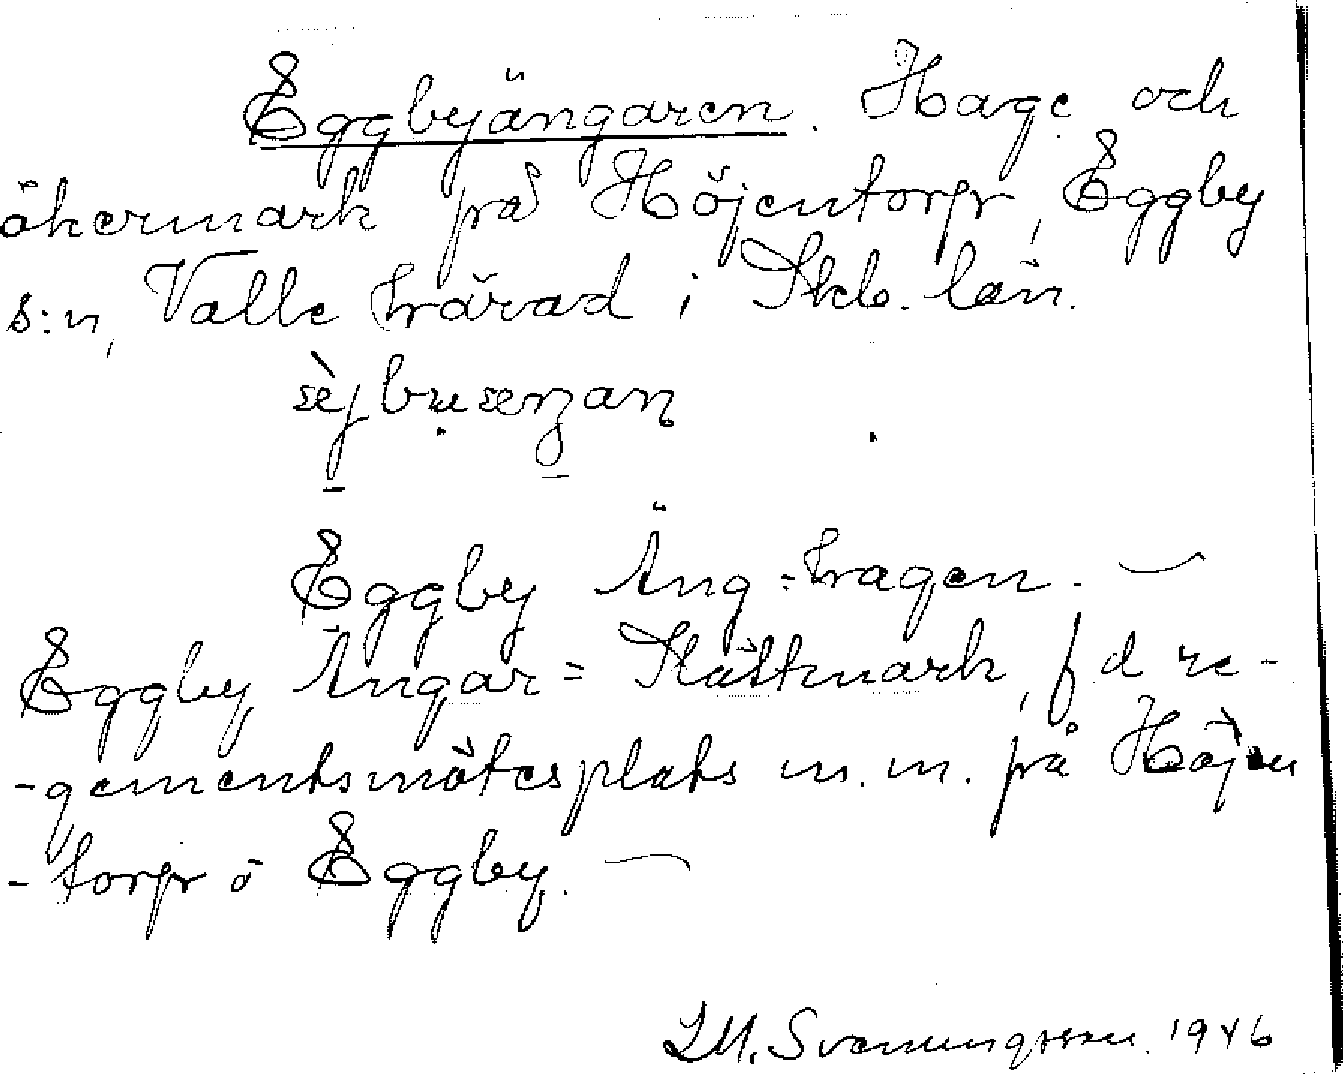 Eggbyängaren. Hage och
åkermark på Höjentorp, Eggby
s:n, Valle härad i Skb. län.
Eggby Äng-hagen. —
Eggby Ängar = Slåttmark, f d re-
-gementsmötesplats m. m. på Höjen
-torp ö Eggby. —
LM. Svenungsson. 1946